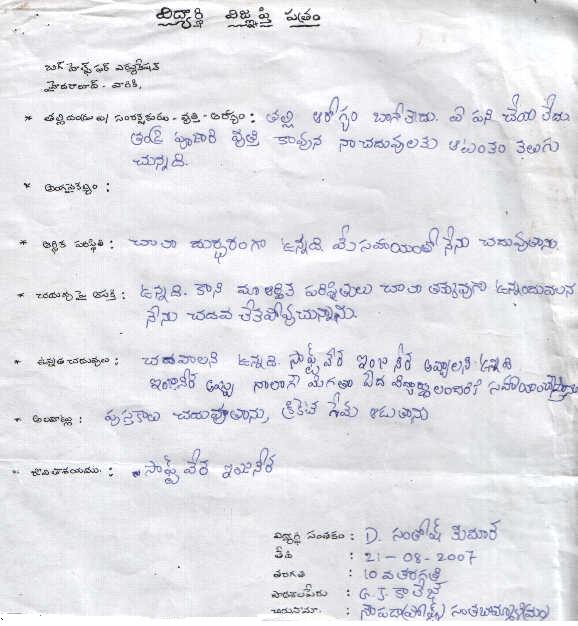 విద్యార్థి విజ్ఞప్తి పత్రం
హైదరాబాద్ - వారికి,
* తల్లిదండ్రులు/ సంరక్షకులు - వృత్తి - ఆరోగ్యం : తల్లి ఆరోగ్యం బాగోలేదు. ఏ పని చేయలేదు
తండ్రి పూజారి వృత్తి కావున నా చదువులకు ఆటంకం
చున్నది.
* అంగవైకల్యం :
* ఆర్థిక పరిస్థితి : చాలా దుర్భరంగా ఉన్నది నేను చదువుతాను.
* చదువు పై ఆసక్తి : ఉన్నది. కాని మా ఆర్థిక పరిస్థితులు చాలా తక్కువగా ఉన్నందువలన
నేను చదవ లేకపోవుచున్నాను.
* ఉన్నత చదువులు : చదవాలని ఉన్నది. సాఫ్ట్ వేర్ ఇంజనీర్ అవ్వాలని ఉన్నది
ఇంజనీర్ నాలాగే మిగతా పేద విద్యార్థులందరికి
* అలవాట్లు : పుస్తకాలు చదువుతాను, క్రికెట్ గేమ్ ఆడుతాను
* జీవితాశయము : సాఫ్ట్ వేర్ ఇంజనీర్
విద్యార్థి సంతకం : D. సంతోష్ కుమార్
తేది : 21-08-2007
తరగతి : 10 వ తరగతి
పాఠశాలపేరు : G.J. కాలేజ్
చిరునామా :